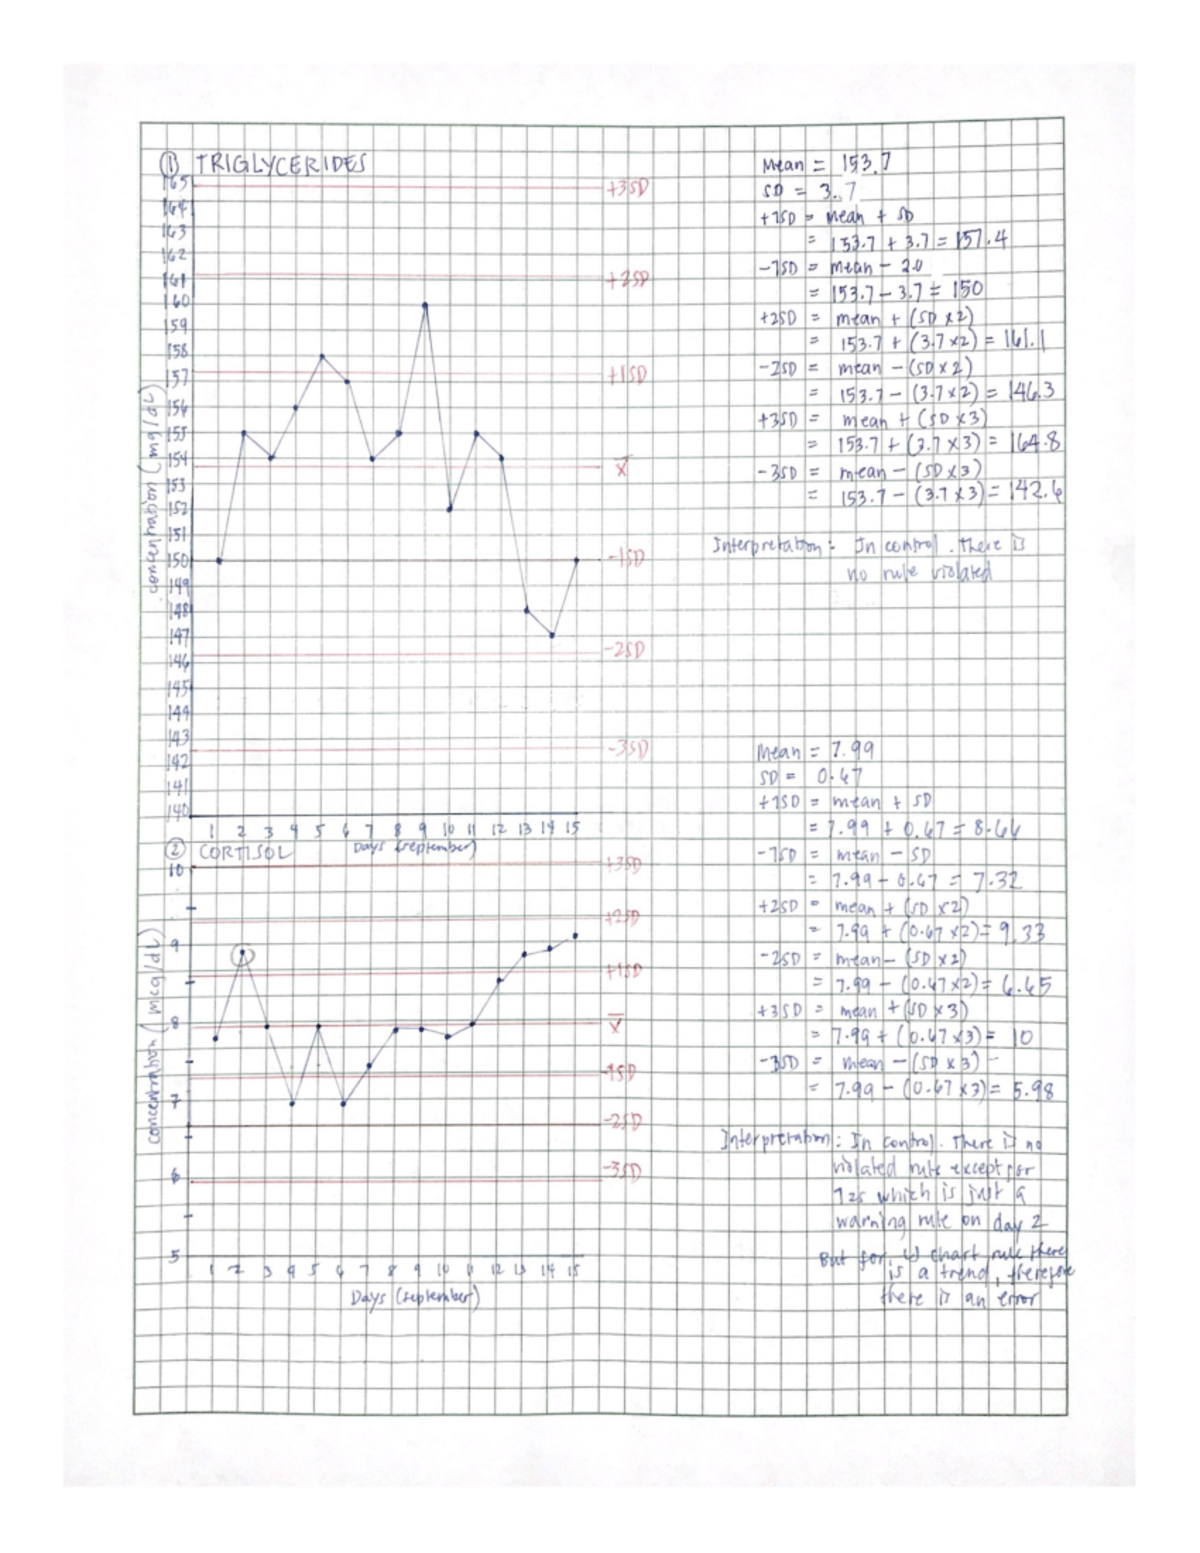 ① TRIGLYCERIDES
165
164
163
162
161
160
159
158
157
156
155
154
153
152
151
150
149
148
147
146
145
144
143
142
141
140
concentration (mg/dL)
+3SD
+2SD
+1SD
X̅
-1SD
-2SD
-3SD
1 2 3 4 5 6 7 8 9 10 11 12 13 14 15
Days (september)
Mean = 153.7
SD = 3.7
+1SD = mean + SD
= 153.7 + 3.7 = 157.4
-1SD = mean - 20
= 153.7 - 3.7 = 150
+2SD = mean + (SD x 2)
= 153.7 + (3.7 x2) = 161.1
-2SD = mean - (SD x 2)
= 153.7 - (3.7 x2) = 146.3
+3SD = mean + (SD x3)
= 153.7 + (3.7 x 3) = 164.8
-3SD = mean - (SD x3)
= 153.7 - (3.7 x 3) = 142.6
Interpretation: In control. there is
no rule violated
② CORTISOL
10
9
8
7
6
5
concentration (mcg/dL)
+3SD
+2SD
+1SD
X̅
-1SD
-2SD
-3SD
1 2 3 4 5 6 7 8 9 10 11 12 13 14 15
Days (september)
Mean = 7.99
SD = 0.67
+1SD = mean + SD
= 7.99 + 0.67 = 8.66
-1SD = mean - SD
= 7.99 - 0.67 = 7.32
+2SD = mean + (SD x2)
= 7.99 + (0.67 x2) = 9.33
-2SD = mean - (SD x2)
= 7.99 - (0.67 x2) = 6.65
+3SD = mean + (SD x 3)
= 7.99 + (0.67 x3) = 10
-3SD = mean - (SD x 3)
= 7.99 - (0.67 x3) = 5.98
Interpretation: In control. There is no
violated rule except for
12s which is just a
warning rule on day 2
But for LJ chart rule there
is a trend, therefore
there is an error